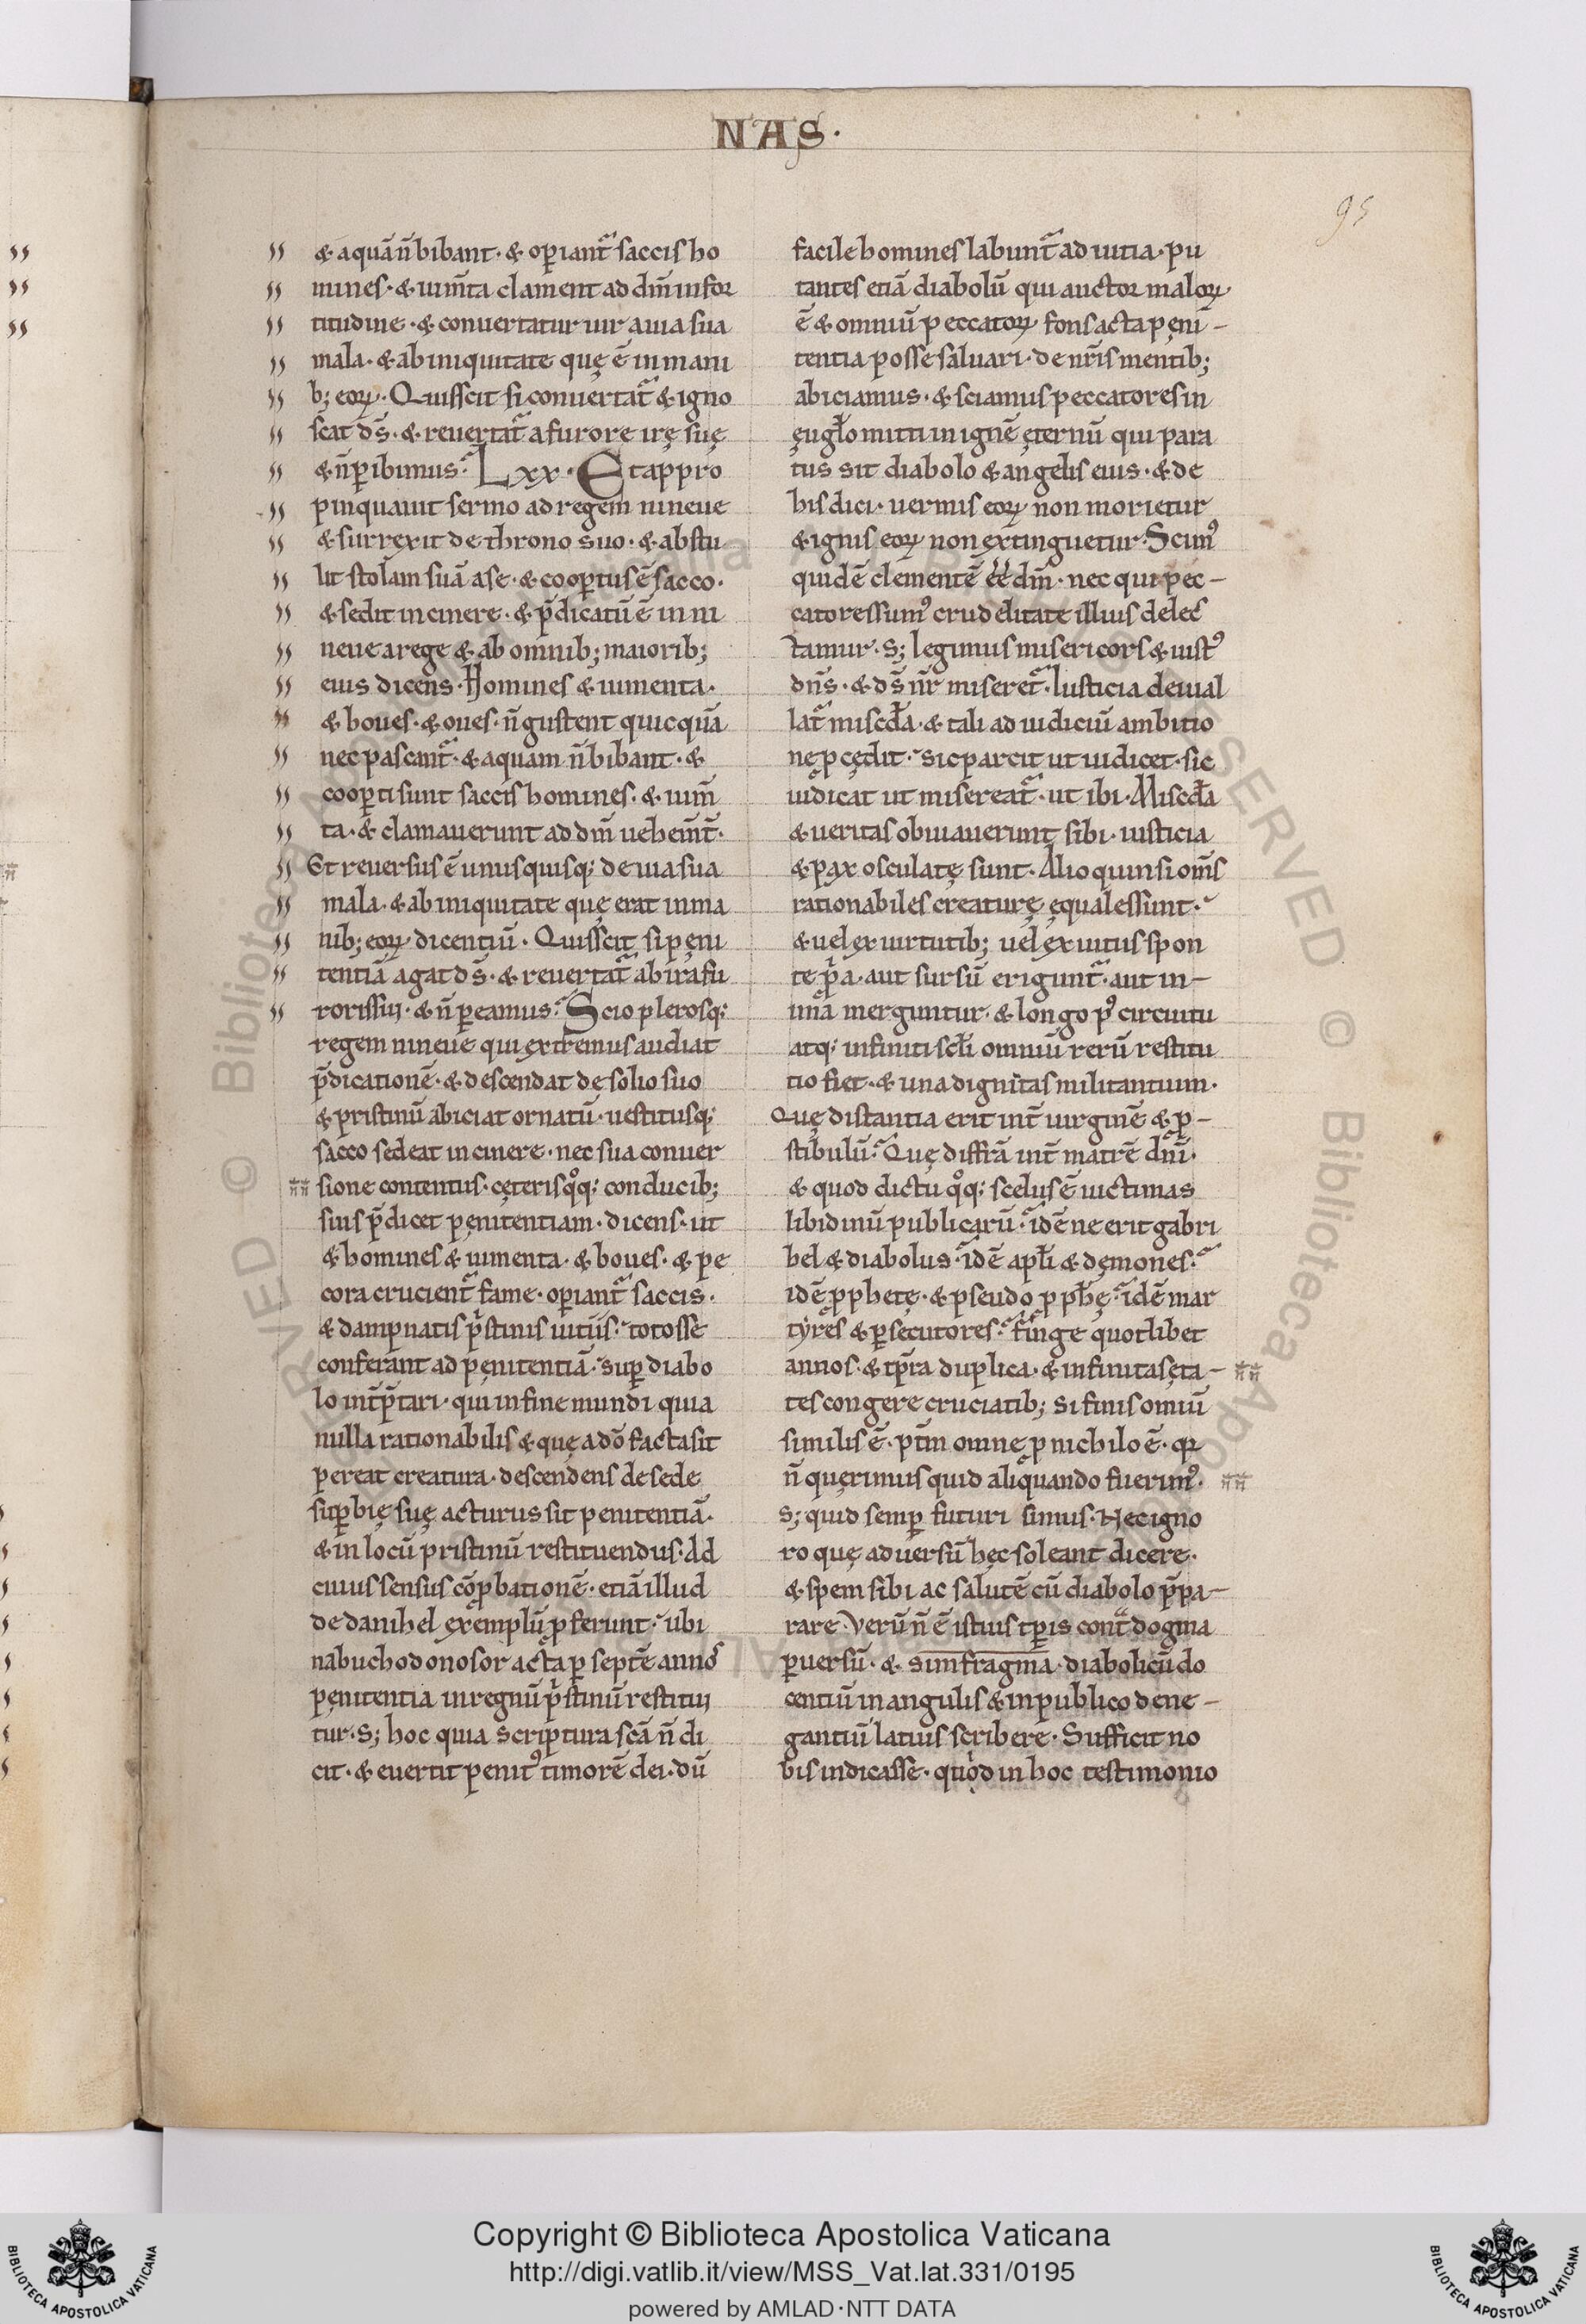 NAS·
95
& aquā n̄ bibant· & oꝑiant᷑ saccis ho
mines· & ium̄ta clament ad dn̄m in for
titudine· & conuertatur uir a uia sua
mala· & ab iniquitate quę ē in mani
b; eoꝝ· Quis scit si conuertat᷑ & igno
scat ds̄· & reuertat᷑ a furore irę suę
& n̄ ꝑibimus· Lxx· Et appro
pinquauit sermo ad regem niniue
& surrexit de throno suo· & abstu
lit stolam suā a se· & cooꝑtus ē sacco·
& sedit in cinere· & p̄dicatū ē in ni
neue a rege & ab omnib; maiorib;
eius dicens· Homines & iumenta·
& boues· & oues· n̄ gustent quicquā
nec pascant᷑· & aquam n̄ bibant· &
cooꝑti sunt saccis homines· & ium̄
ta· & clamauerunt ad dn̄m uehem̄t̄·
Et reuersus ē unusquisq; de uia sua
mala· & ab iniquitate quę erat in ma
nib; eoꝝ dicentiū· Quis scit si pęni
tentiā agat ds̄· & reuertat᷑ ab ira fu
roris sui· & n̄ ꝑeamus· Scio plerosq;
regem nineue qui extremus audiat
p̄dicationē· & descendat de solio suo
& pristinū abiciat ornatū· uestitusq;
sacco sedeat in cinere· nec sua conuer
sione contentus· cęterisqͦq; cum ducib;
suis p̄dicet pęnitentiam· dicens· ut
& homines & iumenta· & boues· & pe
cora crucient᷑ fame· oꝑiant᷑ saccis·
& dampnatis pͥstinis uitiis· totos se
conferant ad pęnitentiā· suꝑ diabo
lo int̄p̄tari· qui in fine mundi quia
nulla rationabilis & quę a dō facta sit
pereat creatura· descendens de sede
suꝑbię suę acturus sit penitentiā·
& in locū pristinū restituendus· Ad
cuius sensus cōꝓbationē· etiā illud
de danihel exemplū ꝓferunt· ubi
nabuchodonosor acta ꝑ septē annos
pęnitentia in regnū pͥstinū restitui
tur· S; hoc quia scriptura scā n̄ di
cit· & euertit penit᷒ timorē dei· dū
facile homines labunt᷑ ad uitia· pu
tantes etiā diabolū qui auctor maloꝝ
ē & omniū peccatoꝝ fons acta pęni-
tentia posse saluari· de nr̄is mentib;
abiciamus· & sciamus peccatores in
ęugło mitti in ignē ęternū qui para
tus sit diabolo & angelis eius· & de
his dici· uermis eoꝝ non morietur
& ignis eoꝝ non extinguetur· Scim᷒
quidē clementē ēē dm̄· nec qui pec-
catores sum᷒ crudelitate illius delec
tamur· S; legimus misericors & iust᷒
dn̄s· & ds̄ nr̄ miseret᷑· Iusticia deiual
lat᷑ miscđa· & tali ad iudiciū ambitio
ne ꝓcędit· sic parcit ut iudicet· sic
iudicat ut misereat᷑· ut ibi· Miscđa
& ueritas obuiauerunt sibi· iusticia
& pax osculatę sunt· Alioquin si om̄s
rationabiles creaturę ęquales sunt·
& uel ex uirtutib; uel ex uitiis spon
te pͥa· aut sursū erigunt᷑· aut in-
ima merguntur· & longo p᷒ circuitu
atq; infiniti scłi omniū rerū restitu
tio fiet· & una dignitas militantium·
Quę distantia erit int̄ uirginē & ꝓ-
stibulū· Quę diffrā int̄ matrē dn̄i·
& quod dictu qͦq; scelus ē uictimas
libidinū publicarū· idē ne erit gabri
hel & diabolus· idē apłi & dęmones·
idē ꝓphetę· & pseudo ꝓpħę· idē mar
tyres & ꝑsecutores· Finge quotlibet
annos· & tp̄ra duplica· & infinitas ęta-
tes congere cruciatib; si finis omiū
similis ē· p̄tm̄ omne ꝓ nichilo ē· qͥa
n̄ quęrimus quid aliquando fuerim᷒·
S; quid semꝑ futuri simus· Nec igno
ro quę aduersū hęc soleant dicere·
& spem sibi ac salutē cū diabolo p̄pa-
rare· Verū n̄ ē istius tꝑis cont̄ dogma
ꝑuersū· & simfragma· diabolicū do
centiū in angulis & in publico dene-
gantiū latius scribere· Sufficit no
bis indicasse· quod in hoc testimonio
Copyright © Biblioteca Apostolica Vaticana
http://digi.vatlib.it/view/MSS_Vat.lat.331/0195
powered by AMLAD·NTT DATA
BIBLIOTECA APOSTOLICA VATICANA
BIBLIOTECA APOSTOLICA VATICANA